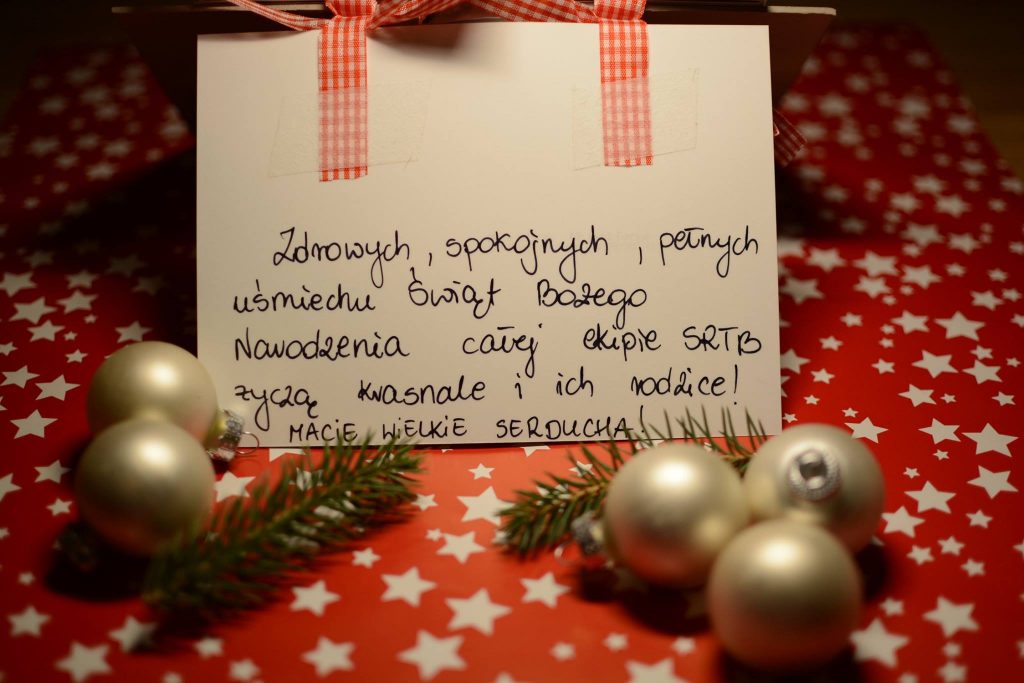 Zdrowych, spokojnych, pełnych
uśmiechu Świąt Bożego
Narodzenia całej ekipie SRTB
życzą krasnale i ich rodzice!
MACIE WIELKIE SERDUCHA!